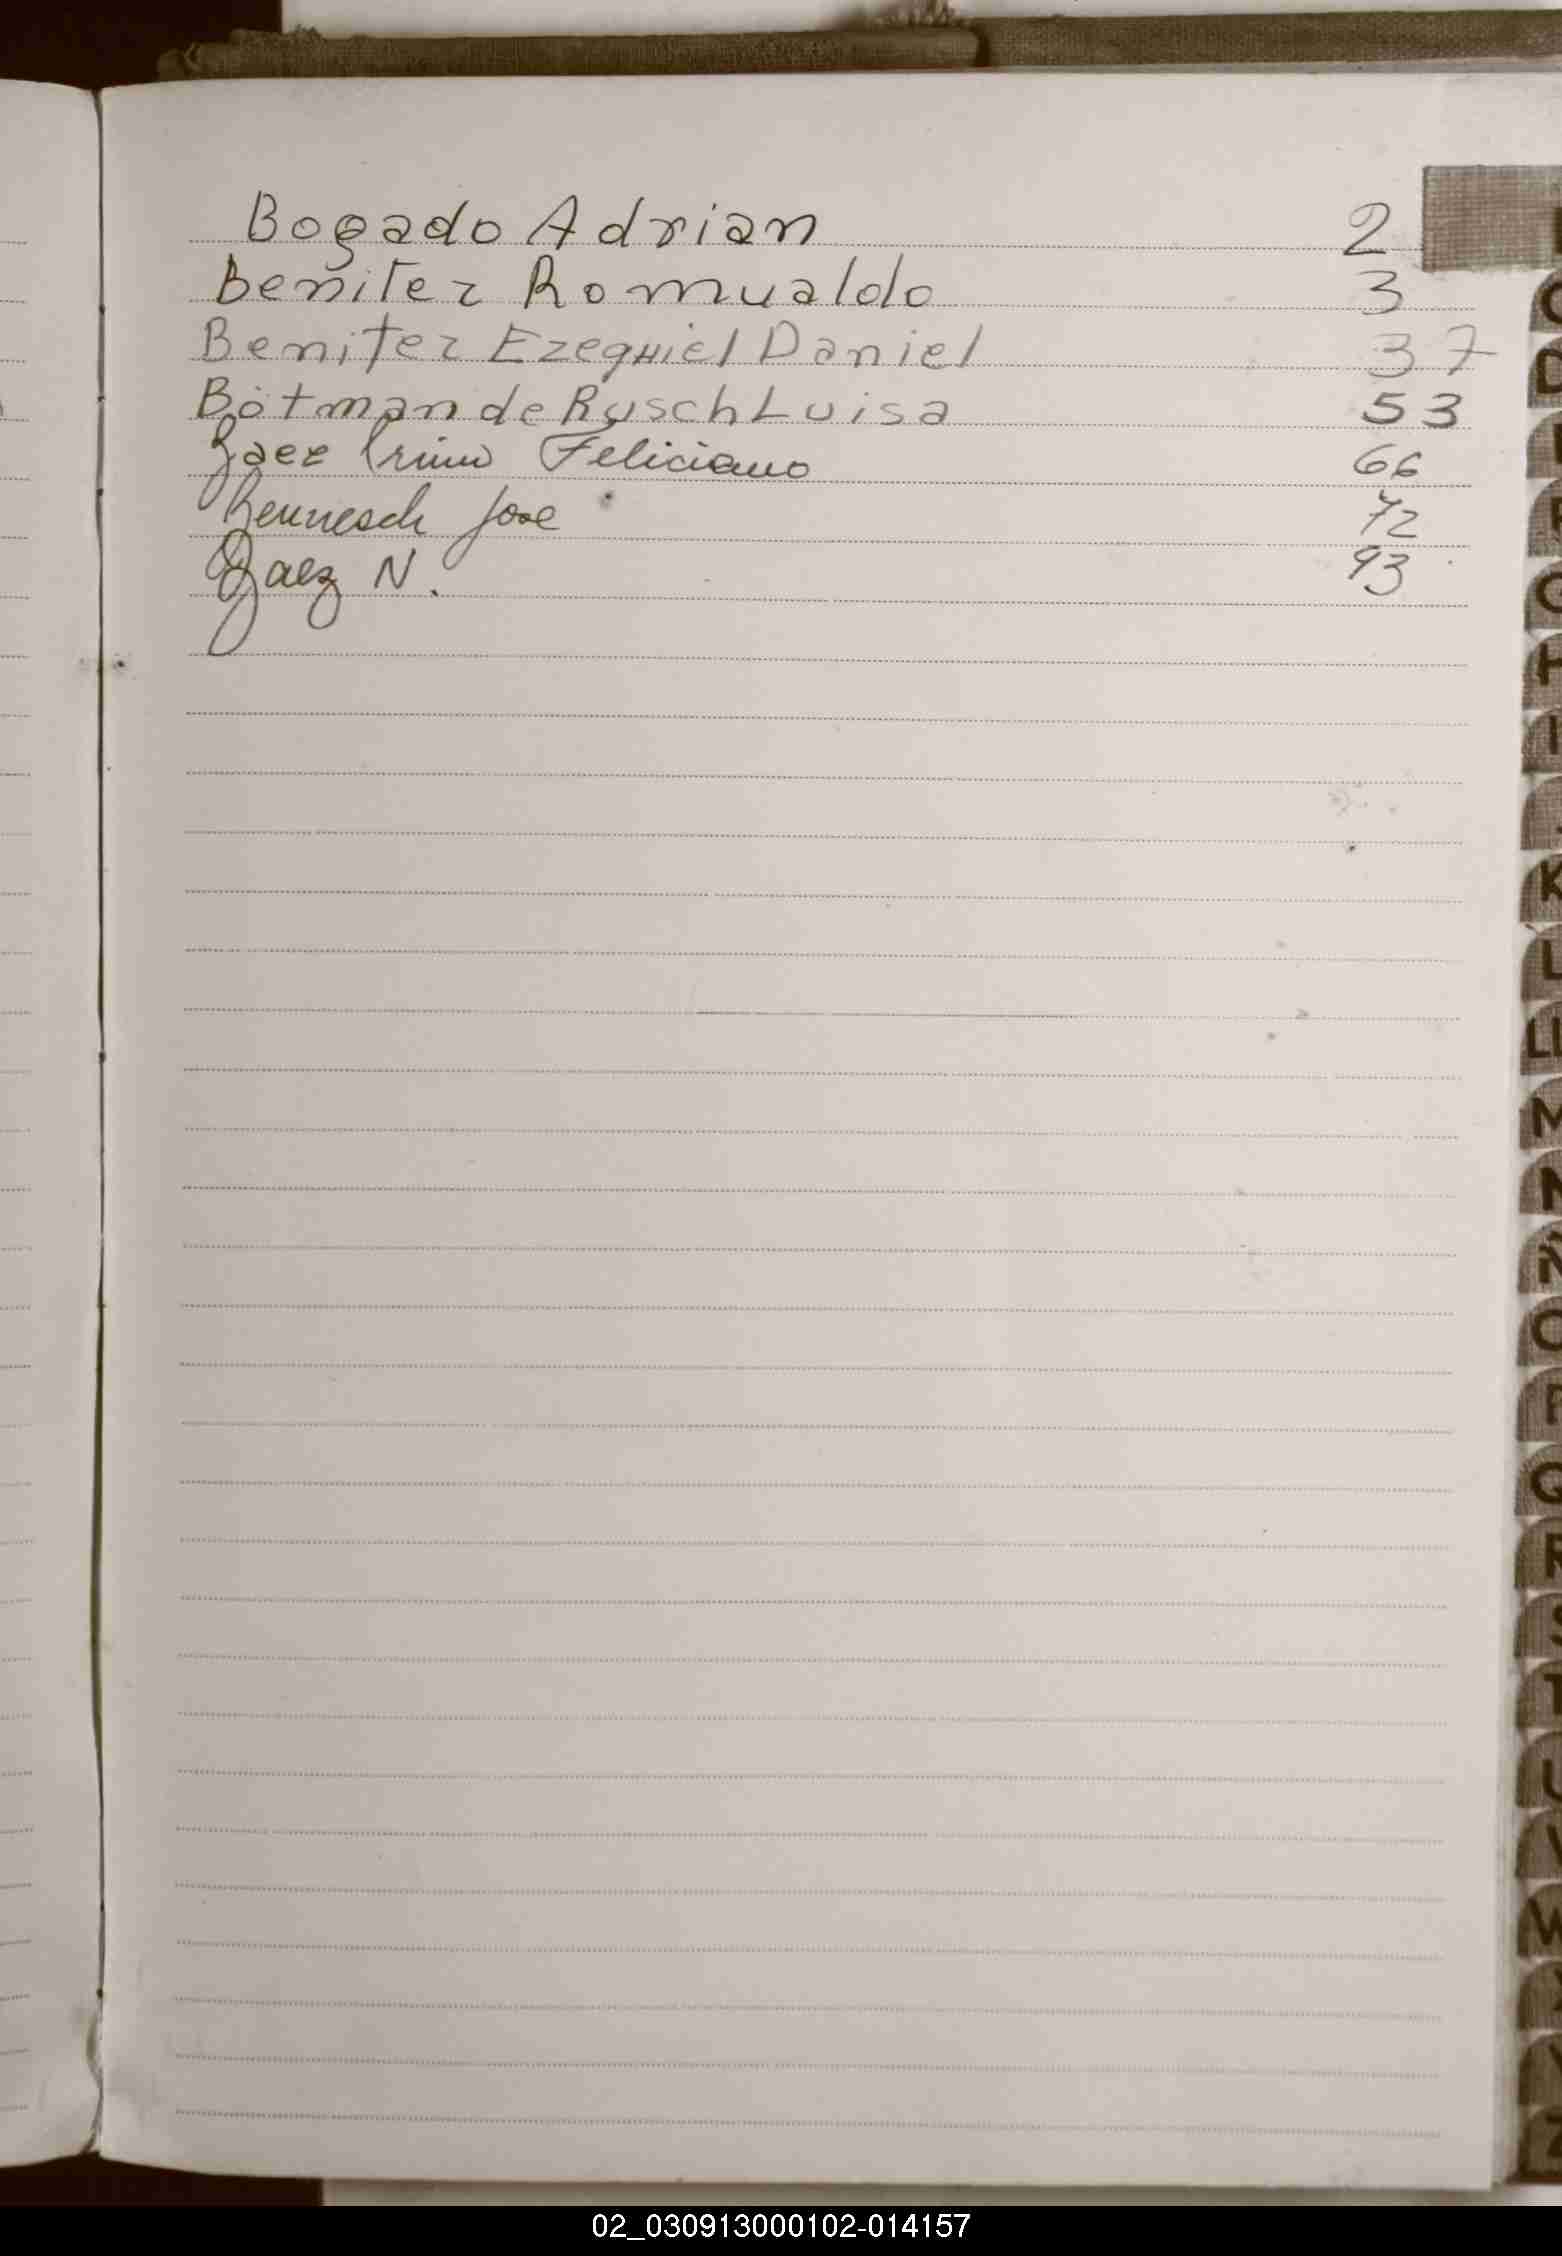 Bogado Adrian 2
Beniter Romualdo 3
Beniter Ezequiel Daniel 37
Botman de Rusch Luisa 53
Baez Primo Feliciano 66
Bennesch Jose 72
Baez N. 93
C
D
G
H
I
K
L
LL
M
N
Ñ
O
P
Q
R
S
T
U
V
W
X
Y
Z
02_030913000102-014157